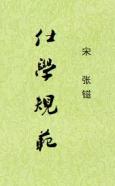 仕學規範
宋 张镃